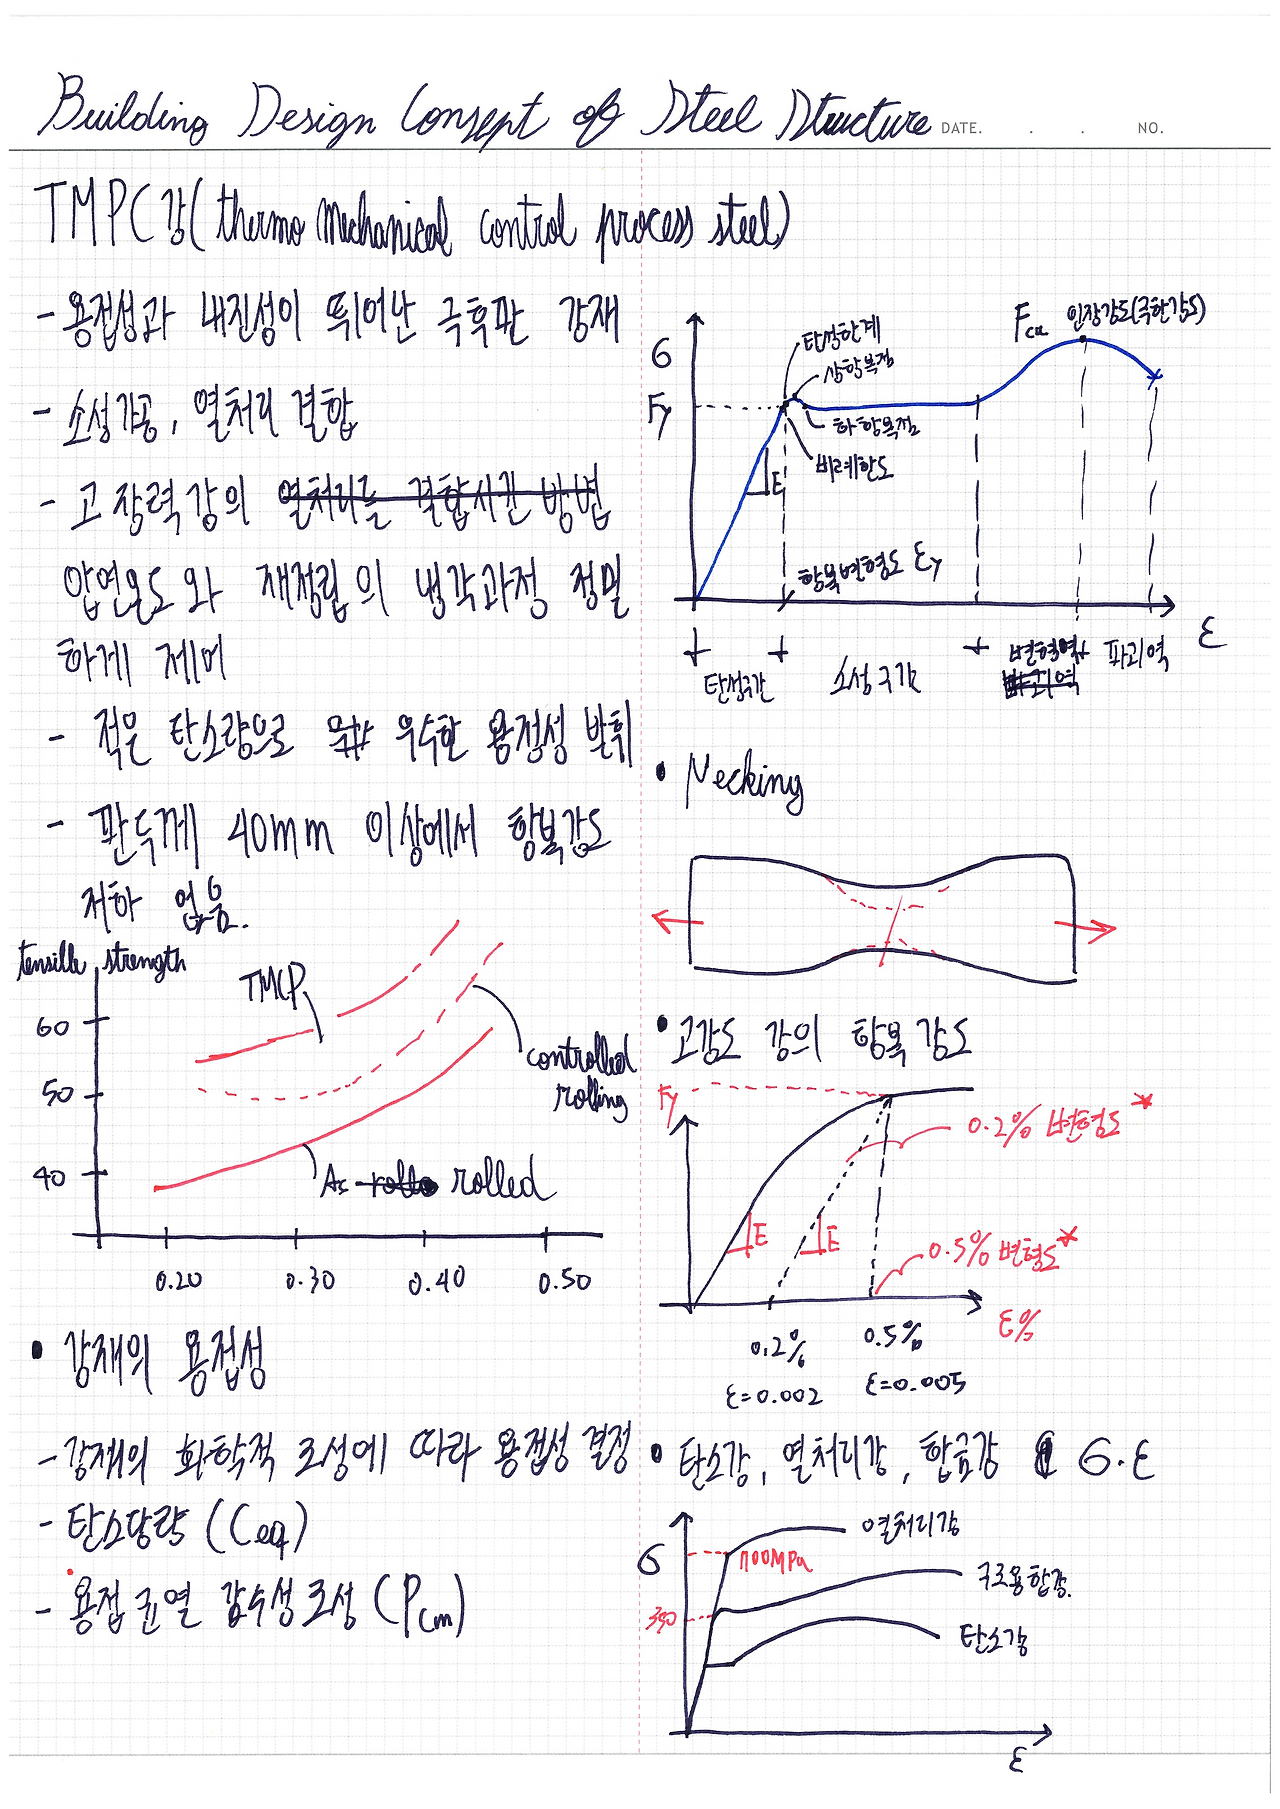 Building Design Consept of Steel Structure DATE. . . NO.
TMPC강(thermo Mechanical control process steel)
- 용접성과 내진성이 뛰어난 극후판 강재
- 소성가공, 열처리 결합
- 고장력강의 열처리를 결합시킨 방법
압연온도와 재정립의 냉각과정 정밀
하게 제어
- 적은 탄소량으로 우수한 용접성 발휘
- 판두께 40mm 이상에서 항복강도
저하 없음.
tensille strength
TMCP
60
50
40
controlled
rolling
As rolled
0.20 0.30 0.40 0.50
• 강재의 용접성
- 강재의 화학적 조성에 따라 용접성 결정
- 탄소당량 (Ceq)
- 용접 균열 감수성 조성 (Pcm)
σ
Fy
탄성한계
상항복점
하항복점
비례한도
E
Fcu 인장강도(극한강도)
항복변형도 εy
ε
탄성구간 소성구간 변형역 파괴역
• Necking
• 고강도 강의 항복 강도
Fy
0.2% 변형도*
E E
0.5% 변형도*
ε%
0.2% 0.5%
ε=0.002 ε=0.005
• 탄소강, 열처리강, 합금강 σ·ε
σ
700MPa
350
열처리강
구조용합강.
탄소강
ε